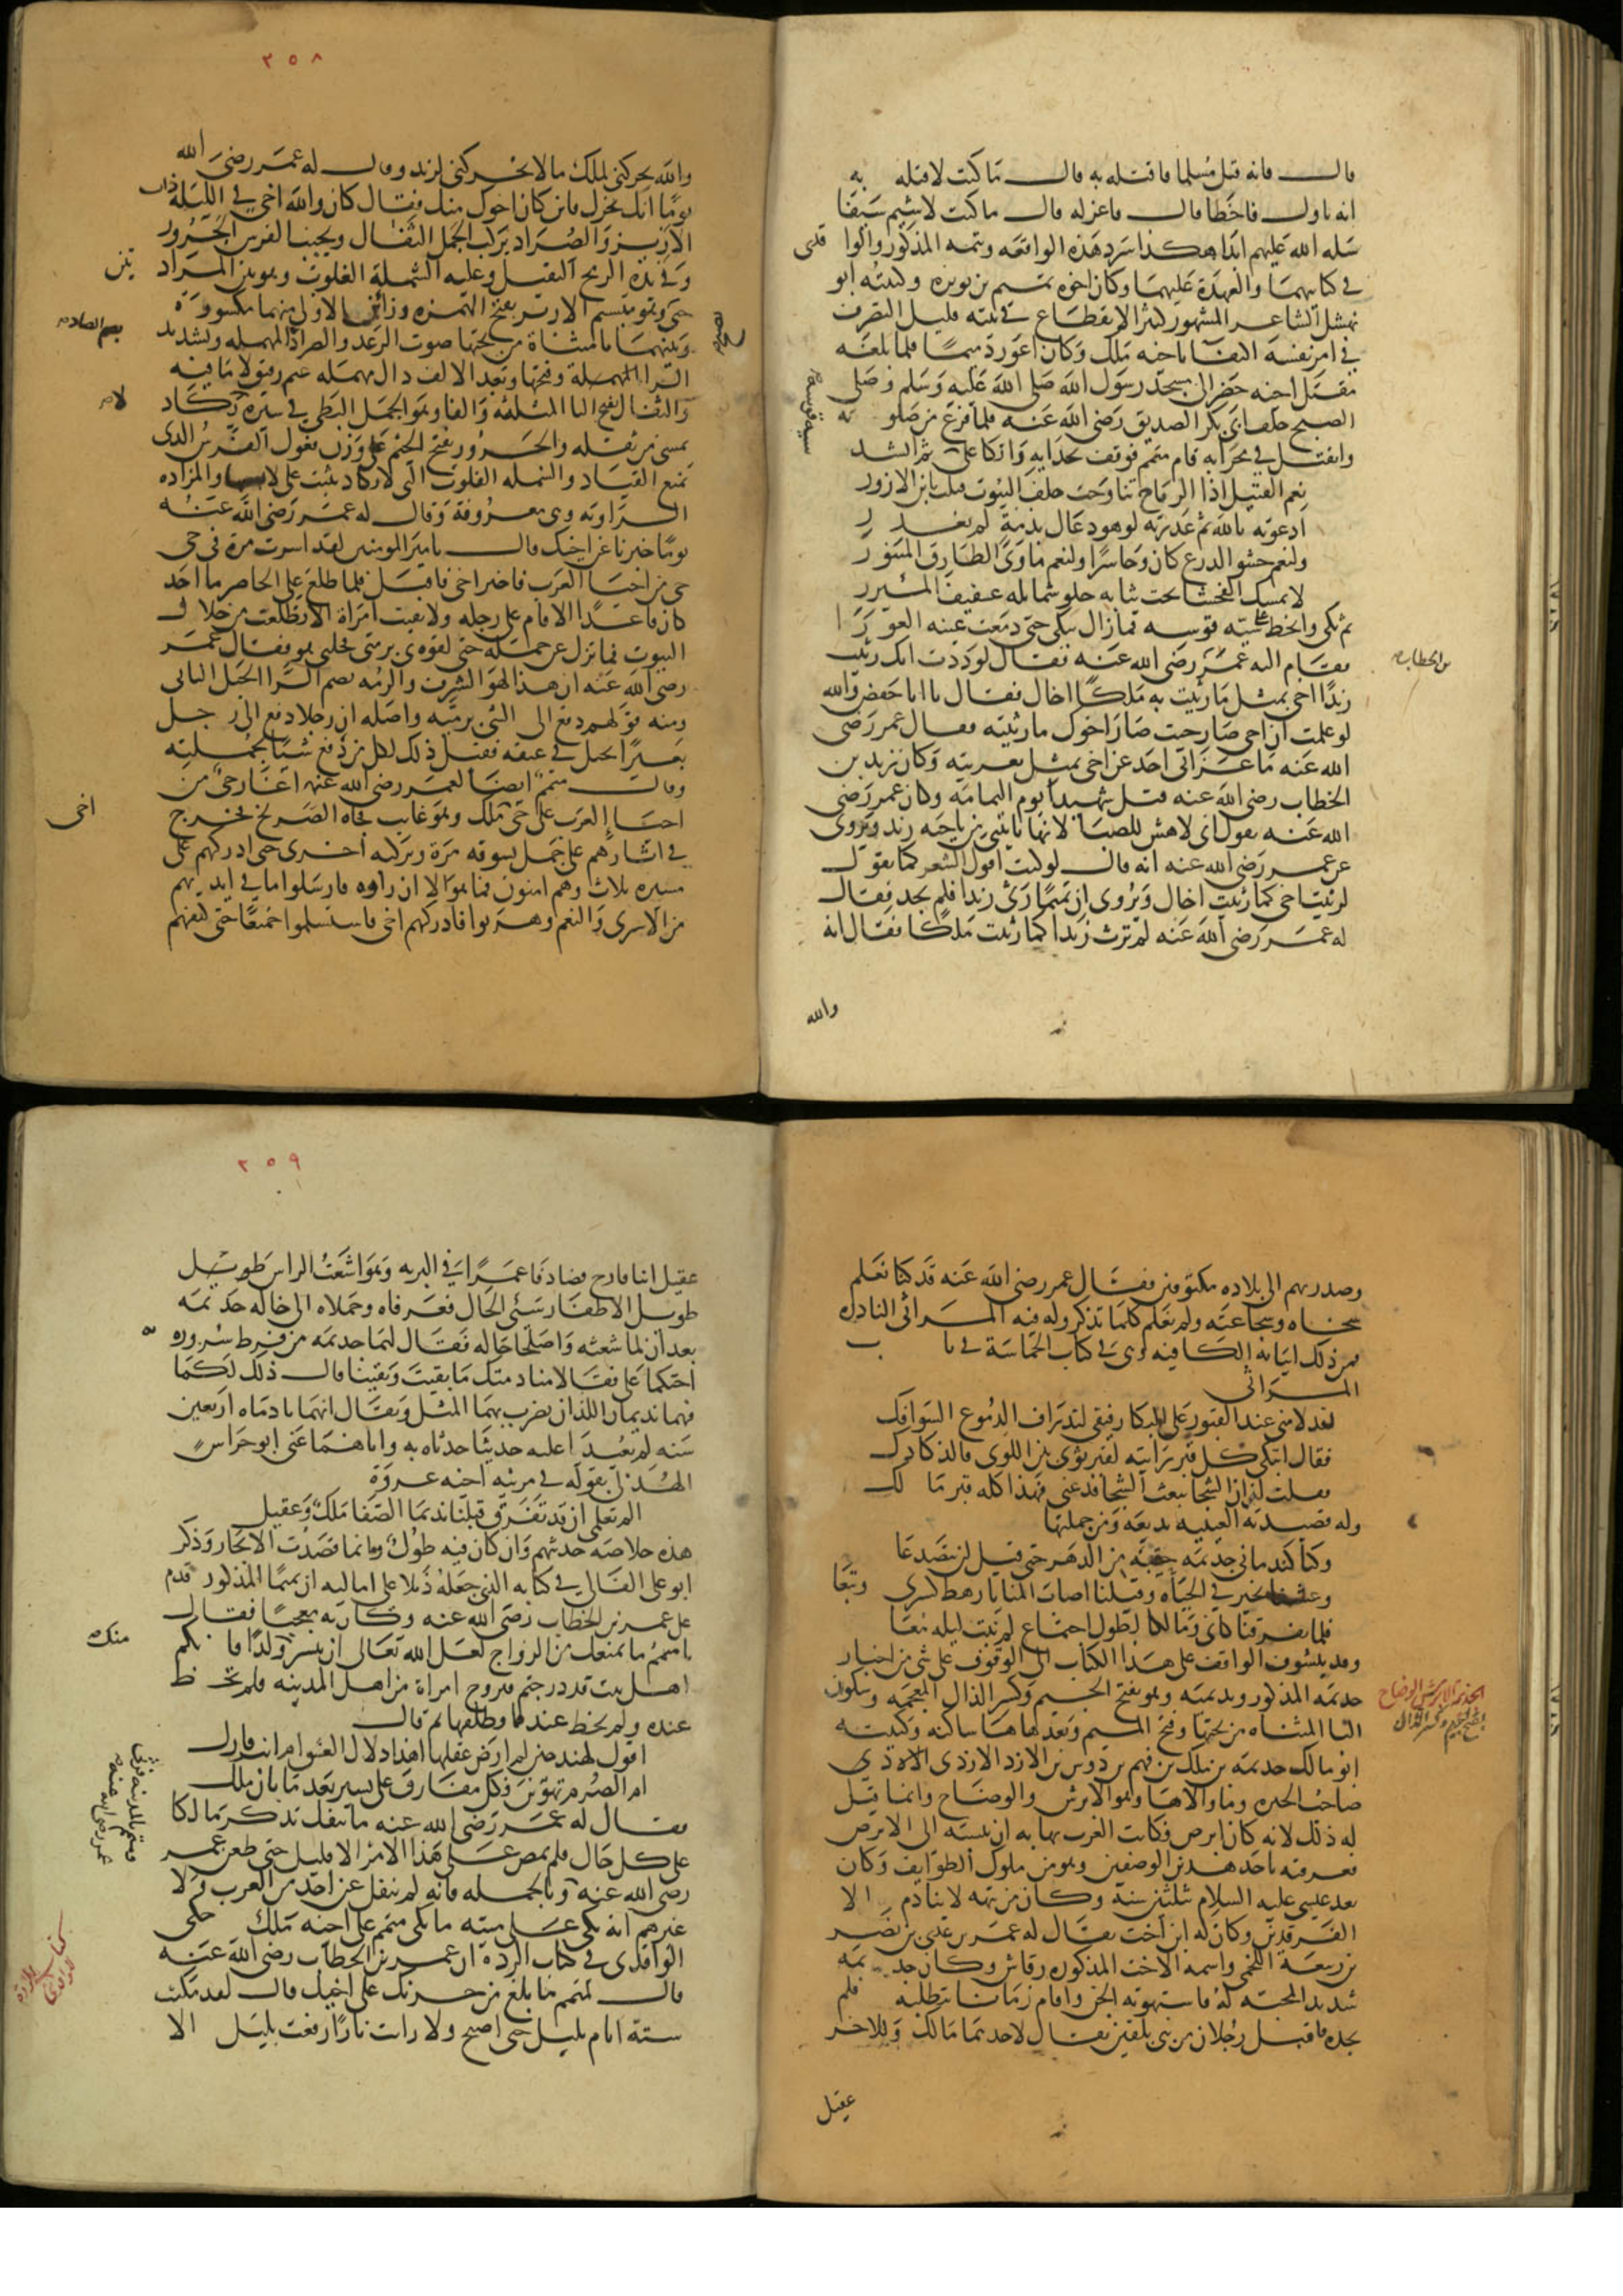 قال فانه قتل مسلما فاقتله به قال ما كنت لاقتله به
انه تاول فاخطا قال فاعزله قال ما كنت لاشيم سيفا
سله الله عليهم ابدا هكذا سرد هذه الواقعة وثمه المذكور والواقدى
فى كتابيهما والعهدة عليهما وكان اخوه متمم بن نويرة وكنيته ابو
نهشل الشاعر المشهور كثير الانقطاع فى بيته قليل التصرف
فى امر نفسه اكتفا باخيه ملك وكان اعور دميما فلما بلغه
مقتل اخيه حضر الى مسجد رسول الله صلى الله عليه وسلم وصلى
الصبح خلف ابى بكر الصديق رضى الله عنه فلما فرغ من صلوته
وانفتل فى محرابه قام متمم فوقف بحذايه واتكا على سية قوسه ثم انشد
نعم القتيل اذا الرياح تناوحت خلف البيوت قتلت يا ابن الازور
ادعوته بالله ثم غدرته لو هو دعاك بذمة لم يغدر
ولنعم حشو الدرع كان وحاسرا ولنعم ماوى الطارق المتنور
لا يمسك الفحشا تحت ثيابه حلو شمايله عفيف الميزر
ثم بكى وانحط على سية قوسه فما زال يبكى حتى دمعت عينه العورا
فقام اليه عمر بن الخطاب رضى الله عنه فقال لوددت انك رثيت
زيدا اخى بمثل ما رثيت به ملكا اخاك فقال يا ابا حفص والله
لو علمت ان اخى صار حيث صار اخوك ما رثيته فقال عمر رضى
الله عنه ما عزانى احد عن اخى بمثل تعزيته وكان زيد بن
الخطاب رضى الله عنه قتل شهيدا يوم اليمامة وكان عمر رضى
الله عنه يقول انى لاهش للصبا لانها تاتينى من ناحية زيد ويروى
عن عمر رضى الله عنه انه قال لو كنت اقول الشعر كما تقول
لرثيت اخى كما رثيت اخاك ويروى ان متمما رثى زيدا فلم يجد فقال
له عمر رضى الله عنه لم ترث زيدا كما رثيت ملكا فقال انه
والله
٢٥٨
والله يحركنى لملك ما لا يحركنى لزيد وقال له عمر رضى الله
يوما انك لجزل فاين كان اخوك منك فقال كان والله اخى فى الليلة ذات
الازيز والصراد يركب الجمل الثفال ويجنب الفرس الجرور
وفى يده الرمح الثقيل وعليه الشملة الفلوت وهو بين المزادتين
حتى يصبح وهو متبسم الازيز بفتح الهمزة وزائين الاولى منهما مكسورة
وبينهما يا مثناة من تحتها صوت الرعد والصراد بضم الصاد المهملة وتشديد
الرا المهملة وفتحها وبعد الالف دال مهملة غيم رقيق لا ما فيه
والثفال بفتح الثا المثلثة والفا وهو الجمل البطى فى سيره لا يكاد
يمشى من ثقله والجرور بفتح الجيم على وزن فعول الفرس الذى
يمنع القياد والشملة الفلوت التى لا تكاد تثبت على لابسها والمزاده
الراويه وهى معروفة وقال له عمر رضى الله عنه
يوما خبرنا عن اخيك قال يا امير المومنين لقد اسرت مرة فى حى
حى من احيا العرب فاخبر اخى فاقبل فلما طلع على الحاضر ما احد
كان قاعدا الا قام على رجله ولا بقيت امراة الا تطلعت من خلال
البيوت فما نزل عن جمله حتى لقوه بى برمتى فحلنى هو فقال عمر
رضى الله عنه ان هذا لهو الشرف والرمه بضم الرا الحبل البالى
ومنه قولهم دفع الى الشى برمته واصله ان رجلا دفع الى رجل
بعيرا بحبل فى عنقه فقيل ذلك لكل من دفع شيئا بجملته
وقال متمم ايضا لعمر رضى الله عنه اغار حى من
احيا العرب على حى اخى ملك وهو غايب فجاه الصريخ فخرج
فى اثارهم على جمل يسوقه مرة ويركبه اخرى حتى ادركهم على
مسيرة ثلاث وهم امنون فما هو الا ان راوه فارسلوا ما فى ايديهم
من الاسرى والنعم وهربوا فادركهم اخى فاستسلموا جميعا حتى كتفهم
وصدر بهم الى بلاده مكتوفين فقال عمر رضى الله عنه قد كنا نعلم
سخاه وشجاعته ولم نعلم كلما تذكر وله فيه المراثى النادرة
فمن ذلك ابياته الكافية وهى فى كتاب الحماسة فى باب
المراثى
لقد لامنى عند القبور على البكا رفيقى لتذراف الدموع السوافك
فقال اتبكى كل قبر رايته لقبر ثوى بين اللوى فالدكادك
فقلت له ان الشجا يبعث الشجا فدعنى فهذا كله قبر مالك
وله قصيدته العينيه بديعة ومن جملتها
وكنا كندمانى جذيمة حقبة من الدهر حتى قيل لن يتصدعا
وعشنا بخير فى الحياة وقبلنا اصاب المنايا رهط كسرى وتبعا
فلما تفرقنا كانى ومالكا لطول اجتماع لم نبت ليلة معا
وقد يتشوف الواقف على هذا الكتاب الى الوقوف على شى من اخبار
جذيمة المذكور وندمانيه وهو بفتح الجيم وكسر الذال المعجمة وسكون
اليا المثناة من تحتها وفتح الميم وبعدها ها ساكنه وكنيته
ابو مالك جذيمة بن ملك بن فهم بن دوس بن الازد الازدى
صاحب الحيرة وما والاها وهو الابرش والوضاح وانما قيل
له ذلك لانه كان ابرص فكانت العرب تهابه ان تنسبه الى البرص
فعرفته باحد هذين الوصفين وهو من ملوك الطوايف وكان
بعد عيسى عليه السلام بثلثين سنة وكان من تيهه لا ينادم الا
الفرقدين وكان له ابن اخت يقال له عمرو بن عدى بن نصر
بن ربيعة اللخمى واسم الاخت المذكوره رقاش وكان جذيمة
شديد المحبة له فاستهوته الجن واقام زمانا يتطلبه فلم
يجده فاقبل رجلان من بنى بلقين يقال لاحدهما مالك وللاخر
عقيل
٢٥٩
عقيل ابنا فارج فصادفا عمرا فى البريه وهو اشعث الراس طويل
طويل الاظفار سئى الحال فعرفاه وحملاه الى خاله جذيمة
بعد ان لما شعثه واصلحا حاله فقال لهما جذيمه من فرط سروره به
احتكما على فقالا منادمتك ما بقيت وبقينا قال ذلك لكما
فهما نديماه اللذان يضرب بهما المثل ويقال انهما نادماه اربعين
سنه لم يعيدا عليه حديثا حدثاه به واياهما عنى ابو خراش
الهذلى بقوله فى مرثية اخيه عروة
الم تعلمى ان قد تفرق قبلنا نديما الصفا ملك وعقيل
هذه خلاصة حديثهم وان كان فيه طول وانما قصدت الايجاز وذكر
ابو على القالى فى كتابه الذى جعله ذيلا على اماليه ان متمما المذكور قدم
على عمر بن الخطاب رضى الله عنه وكان به معجبا فقال
يا متمم ما يمنعك من الزواج لعل الله تعالى ان ينشر منك ولدا فانكم
اهل بيت قد درجتم فتزوج امراة من اهل المدينه فلم تحظ
عنده ولم يحظ عندها وطلقها ثم قال
اقول لهند حين لم ارض عقلها اهذا دلال العشق ام انت فارك
ام الصرم تهوين فكل مفارق على يسير بعد ما بان ملك
فقال له عمر رضى الله عنه ما تنفك تذكر مالكا
على كل حال فلم يمض على هذا الامر الا قليل حتى طعن عمر
رضى الله عنه ومتمم بالمدينه فرثى عمر رضى الله عنه
وبالجمله فانه لم ينقل عن احد من العرب ولا
غيرهم انه بكى على ميته ما بكى متمم على اخيه ملك حكى
الواقدى فى كتاب الردة ان عمر بن الخطاب رضى الله عنه
قال لمتمم ما بلغ من حزنك على اخيك قال لقد مكثت
سنة انام بليل حتى اصبح ولا رايت نارا رفعت بليل الا